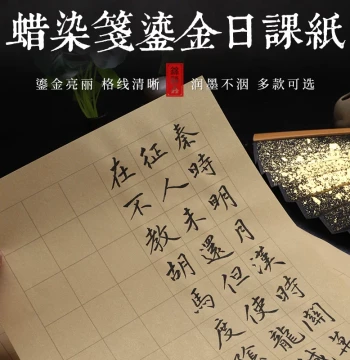 蜡染笺鎏金日課紙
鎏金亮丽 格线清晰 润墨不洇 多款可选
秦時明月漢時關萬
征人未還但使龍城
在不教胡馬度陰